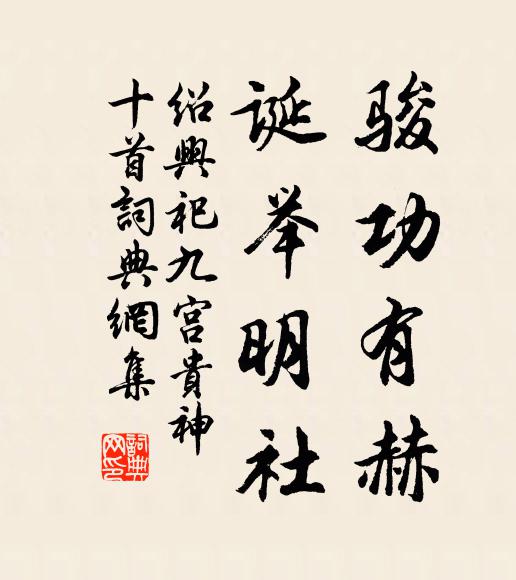 骏功有赫
诞举明社
绍興祀九宫貴神
十首詞典網集
詞典網印